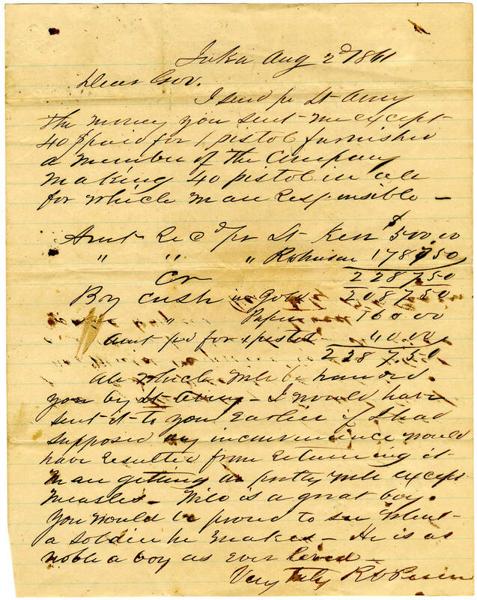 Iuka Aug 2d 1861
Dear Gov.
I send pr Lt Amy
the money you sent me except
40$ paid for 1 pistol furnished
a member of the Company
making 40 pistols in all
for which I am responsible —
Amt Rec'd pr Lt Kerr $500.00
" " " Robinson 1787.50
2287.50
Cr
By cash in Gold 2087.50
" " Paper 160.00
" amt pd for 1 pistol 40.00
2287.50
all which will be handed
you by Lt Amy — I would have
sent it to you earlier if I had
supposed any inconvenience would
have resulted from retaining it
Men getting on pretty well except
measles — Milo is a great boy.
You would be proud to see what
a soldier he makes — He is as
noble a boy as ever lived —
Very truly R O